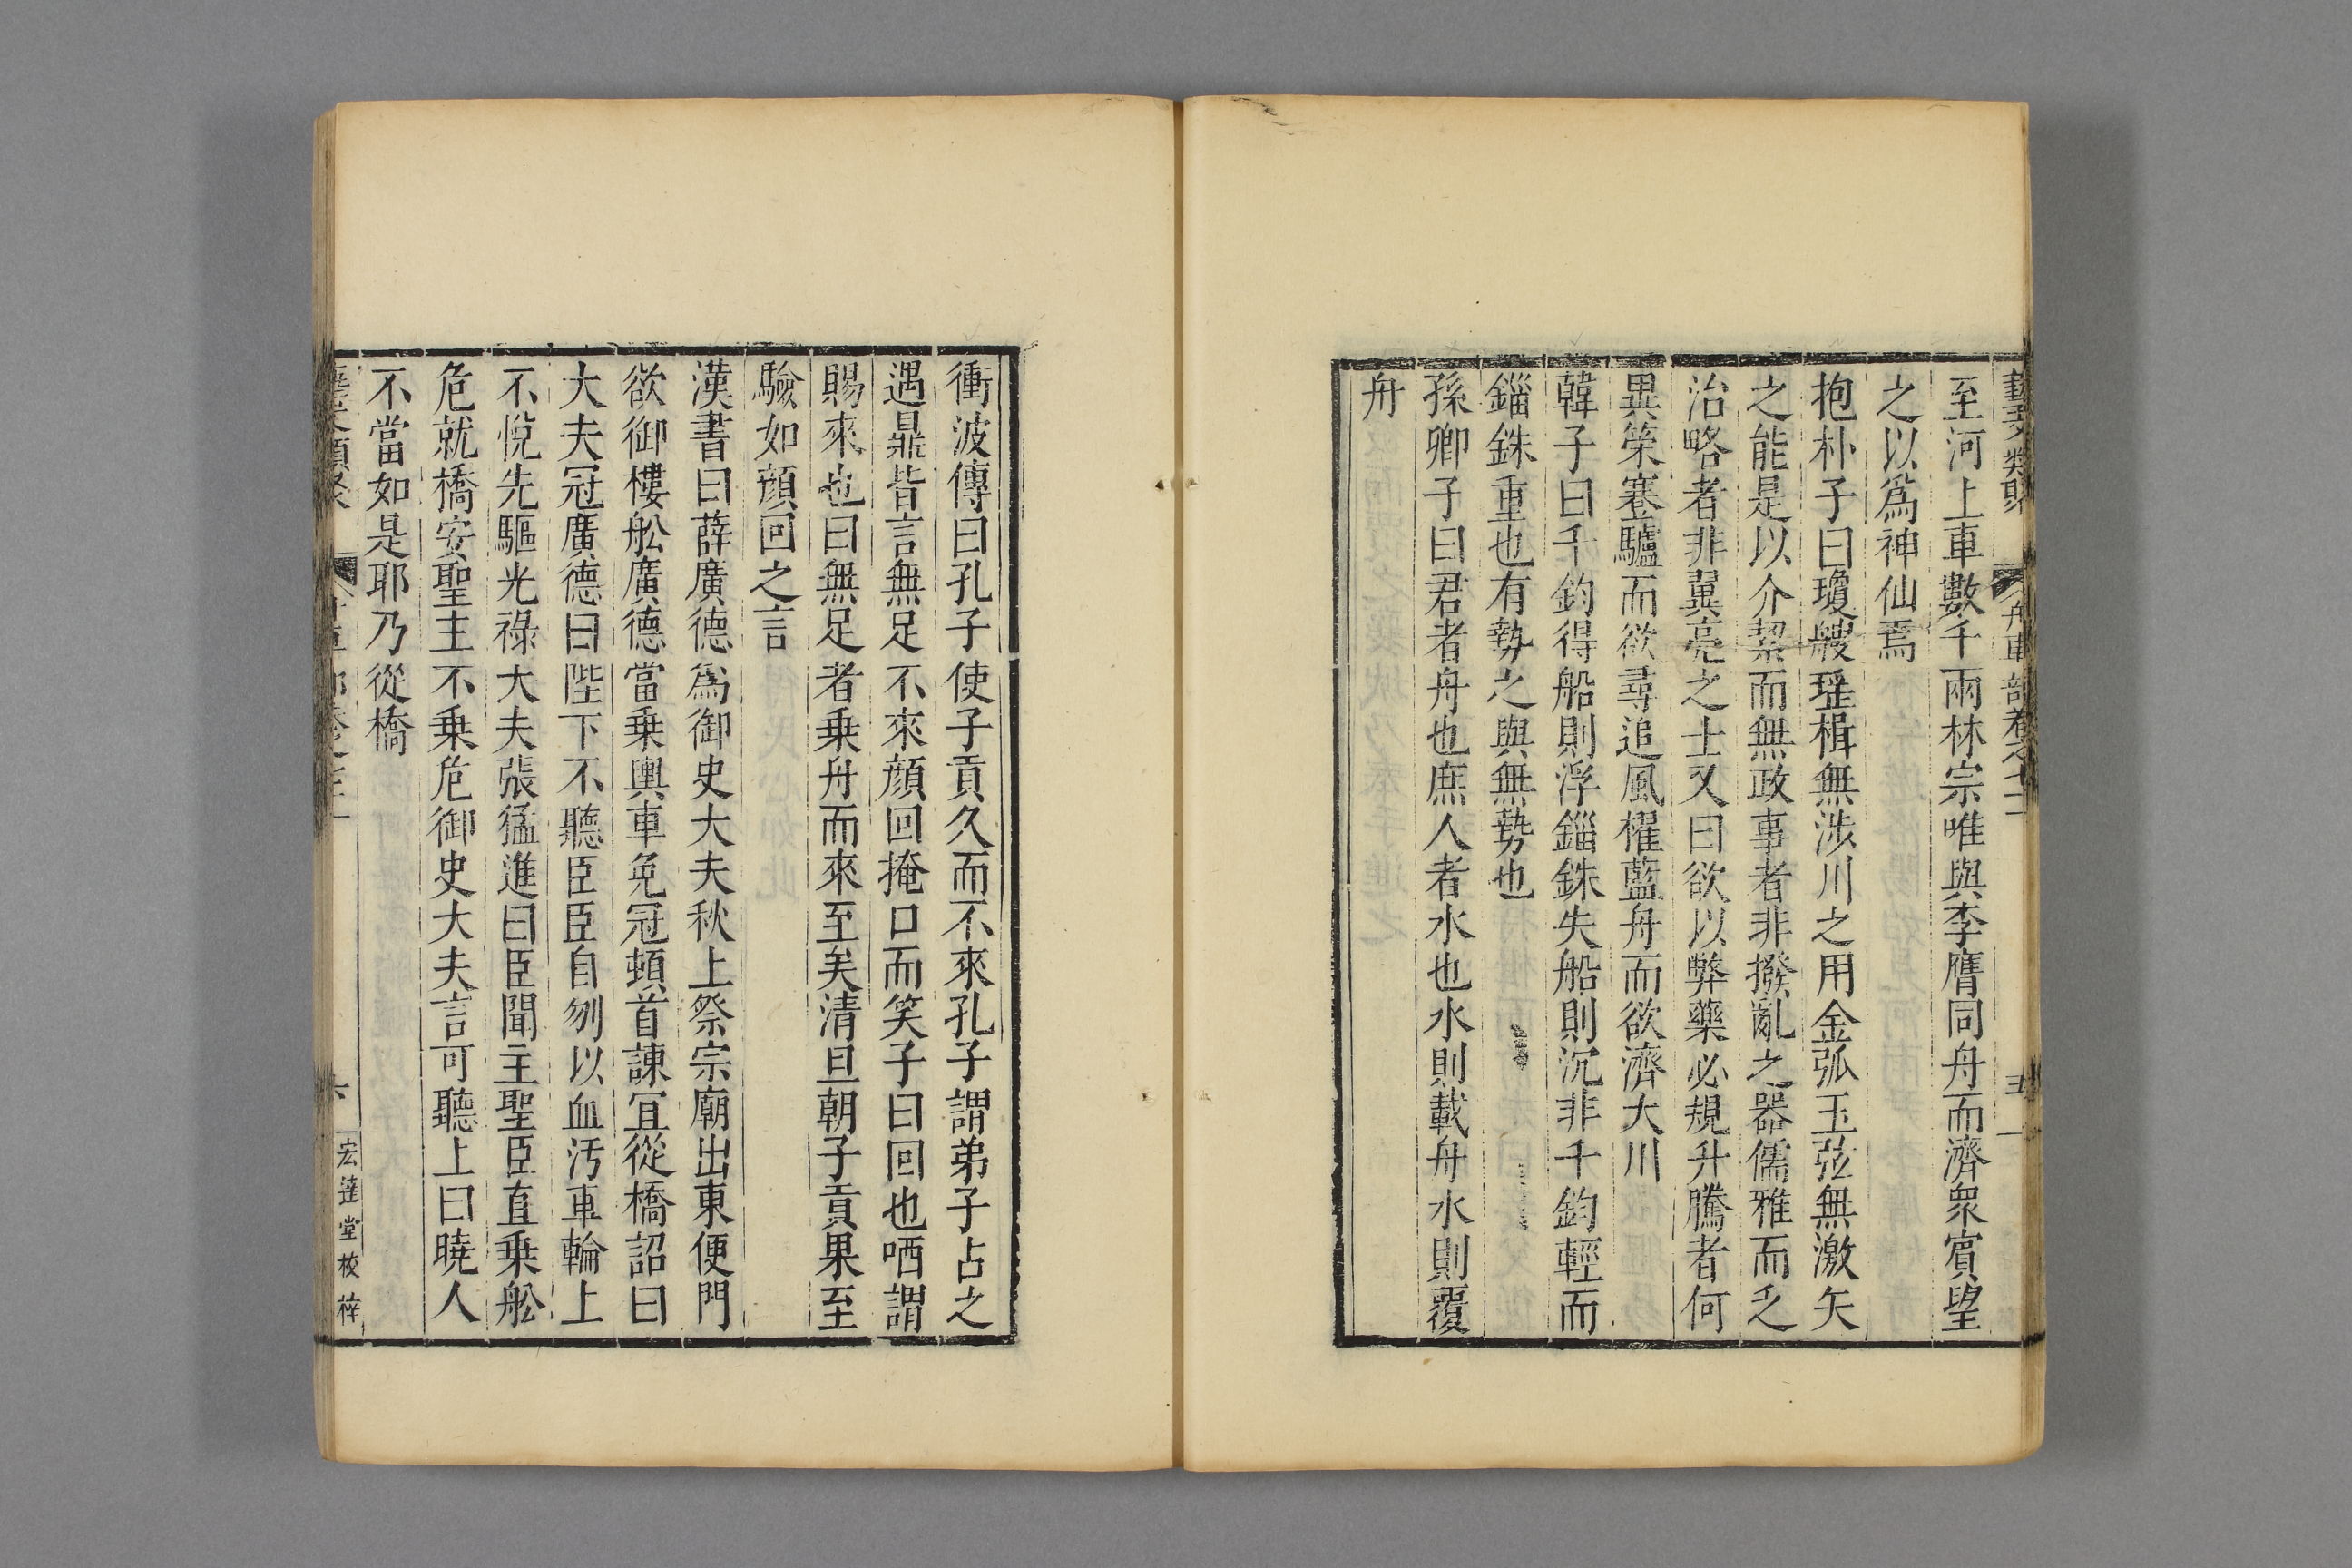 至河上車數千兩林宗唯與李膺同舟而濟衆賓望
之以爲神仙焉
抱朴子曰瓊艘瑶楫無涉川之用金弧玉弦無激矢
之能是以介絜而無政事者非撥亂之器儒雅而乏
治略者非翼亮之士又曰欲以弊藥必規升騰者何
異策蹇驢而欲尋追風櫂藍舟而欲濟大川
韓子曰千鈞得船則浮錙銖失船則沉非千鈞輕而
錙銖重也有勢之與無勢也
孫卿子曰君者舟也庶人者水也水則載舟水則覆
舟
衝波傳曰孔子使子貢久而不來孔子謂弟子占之
遇鼎皆言無足不來顔回掩口而笑子曰回也哂謂
賜來也曰無足者乗舟而來至矣清旦朝子貢果至
驗如顔回之言
漢書曰薛廣德爲御史大夫秋上祭宗廟出東便門
欲御樓舩廣德當乗輿車免冠頓首諫冝從橋詔曰
大夫冠廣德曰陛下不聽臣臣自刎以血汚車輪上
不悅先驅光祿大夫張猛進曰臣聞主聖臣直乗舩
危就橋安聖主不乗危御史大夫言可聽上曰曉人
不當如是耶乃從橋
六
宏達堂校梓